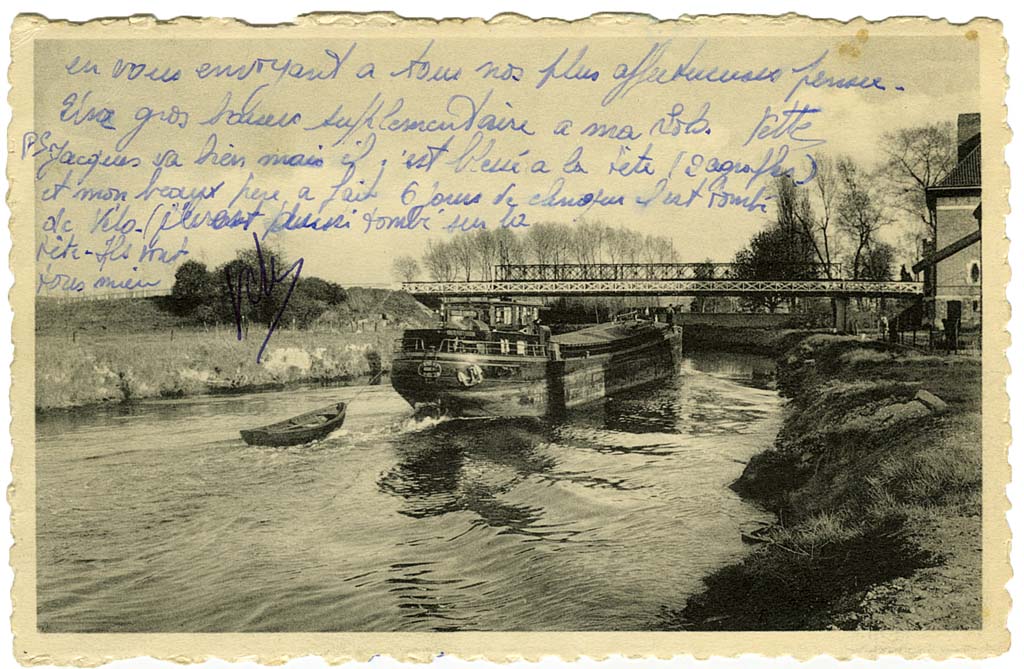 en vous envoyant a tous nos plus affectueuses pensée.
Une gros baiser supplementaire a ma Lol. Yette
PS Jacques va bien mais il s'est blessé a la tête (2 agraffes)
et mon beaux pere a fait 6 jours de clinique il est tombé
de Vélo. ( aussi tombé sur la
tête - Ils vont
tous mieu